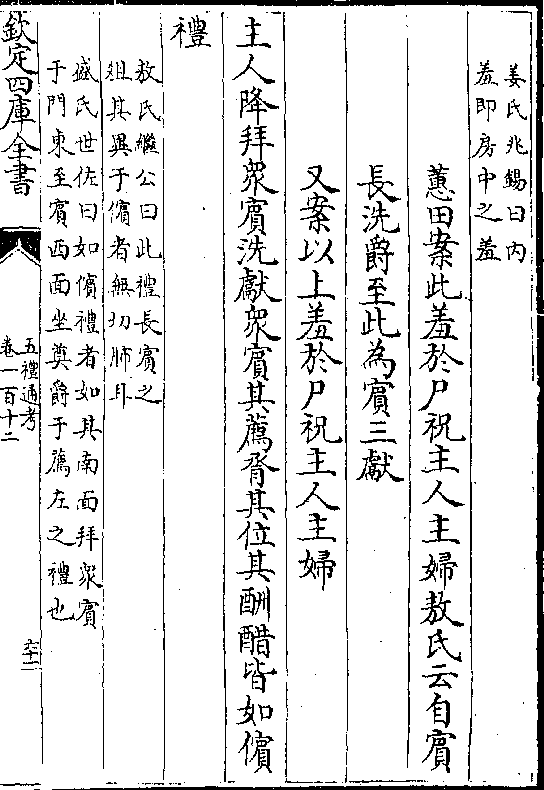 姜氏兆錫曰内
羞即房中之羞
蕙田案此羞於尸祝主人主婦敖氏云自賓
長洗爵至此為賓三獻
又案以上羞於尸祝主人主婦
主人降拜衆賓洗獻衆賓其薦脀其位其酬醋皆如儐
禮
敖氏繼公曰此禮長賓之
俎其異于儐者無切肺耳
盛氏世佐曰如儐禮者如其南面拜衆賓
于門東至賓西面坐奠爵于薦左之禮也
欽定四庫全書
五禮通考
卷一百十二
六十二